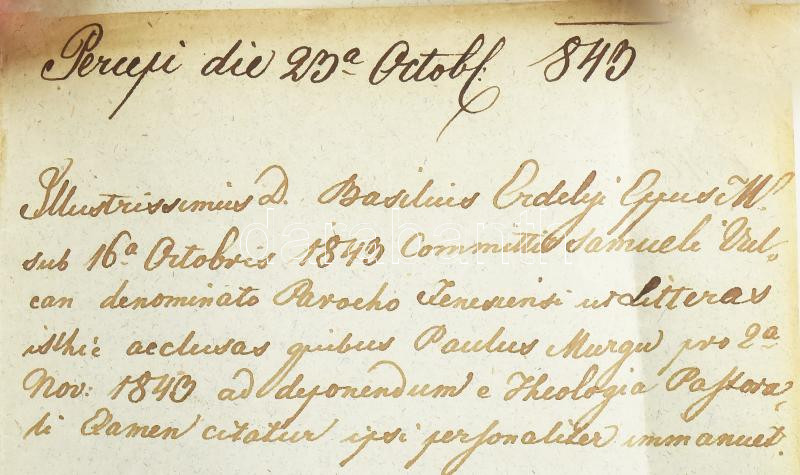 Percepi die 23ª Octobr. 843
Illustrissimus D. Basilius Erdelyi Eppus M.V.
sub 16ª Octobris 1843 Committit Samueli Vul-
can denominato Parocho Tenesiensi ut litteras
isthic acclusas quibus Paulus Murgu pro 2ª
Nov: 1843 ad deponendum e Theologia Pastora-
li Examen citatur ipsi personaliter immanuet.